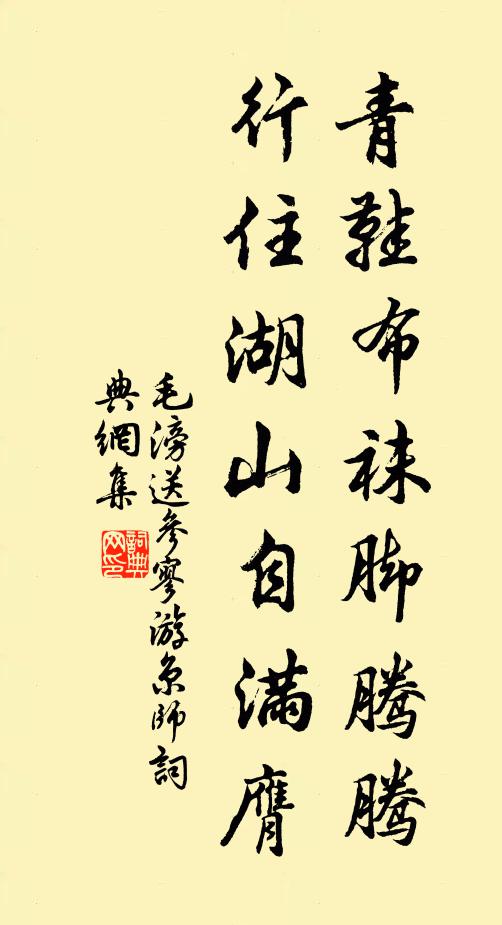 青鞋布袜脚腾腾
行住湖山自满膺
毛滂送参寥游京师词
典網集
詞典网印